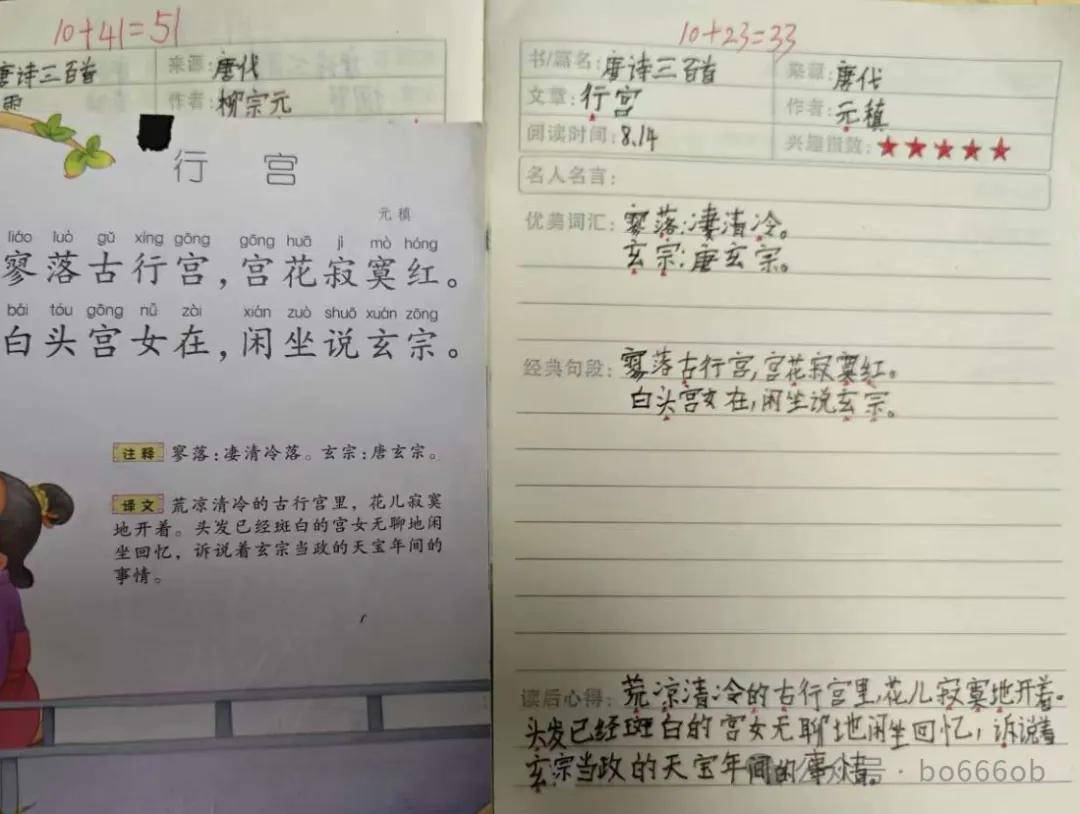 10+41=51
唐诗三百首
来源:唐代
作者:柳宗元
行宫
元稹
liáo luò gǔ xíng gōng gōng huā jì mò hóng
寥落古行宫,宫花寂寞红。
bái tóu gōng nǚ zài xián zuò shuō xuán zōng
白头宫女在,闲坐说玄宗。
注释 寥落:凄清冷落。玄宗:唐玄宗。
译文 荒凉清冷的古行宫里,花儿寂寞
地开着。头发已经斑白的宫女无聊地闲
坐回忆,诉说着玄宗当政的天宝年间的
事情。
10+23=33
书/篇名:唐诗三百首
来源:唐代
文章:行宫
作者:元稹
阅读时间:8.14
兴趣指数:★★★★★
名人名言:
优美词汇:寥落:凄清冷。
玄宗:唐玄宗。
经典句段:寥落古行宫,宫花寂寞红。
白头宫女在,闲坐说玄宗。
读后心得:荒凉清冷的古行宫里,花儿寂寞地开着。
头发已经斑白的宫女无聊地闲坐回忆,诉说着
玄宗当政的天宝年间的事情。
号·bo666ob